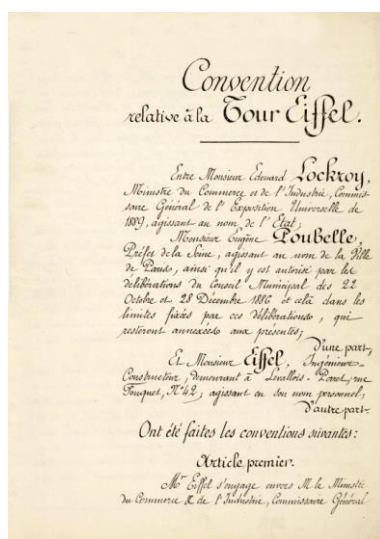 Convention
relative à la Tour Eiffel.
Entre Monsieur Edouard Lockroy,
Ministre du Commerce et de l'Industrie, Commis-
saire Général de l'Exposition Universelle de
1889, agissant au nom de l'Etat;
Monsieur Eugène Poubelle,
Préfet de la Seine, agissant au nom de la Ville
de Paris, ainsi qu'il y est autorisé par les
délibérations du Conseil Municipal des 22
Octobre et 28 Décembre 1886 et cela dans les
limites fixées par ces délibérations, qui
resteront annexées aux présentes;
D'une part;
Et Monsieur Eiffel, Ingénieur-
Constructeur, demeurant à Levallois-Perret, rue
Fouquet, N° 42, agissant en son nom personnel;
D'autre part.
Ont été faites les conventions suivantes:
Article premier.
Mr Eiffel s'engage envers M. le Ministre
du Commerce & de l'Industrie, Commissaire Général